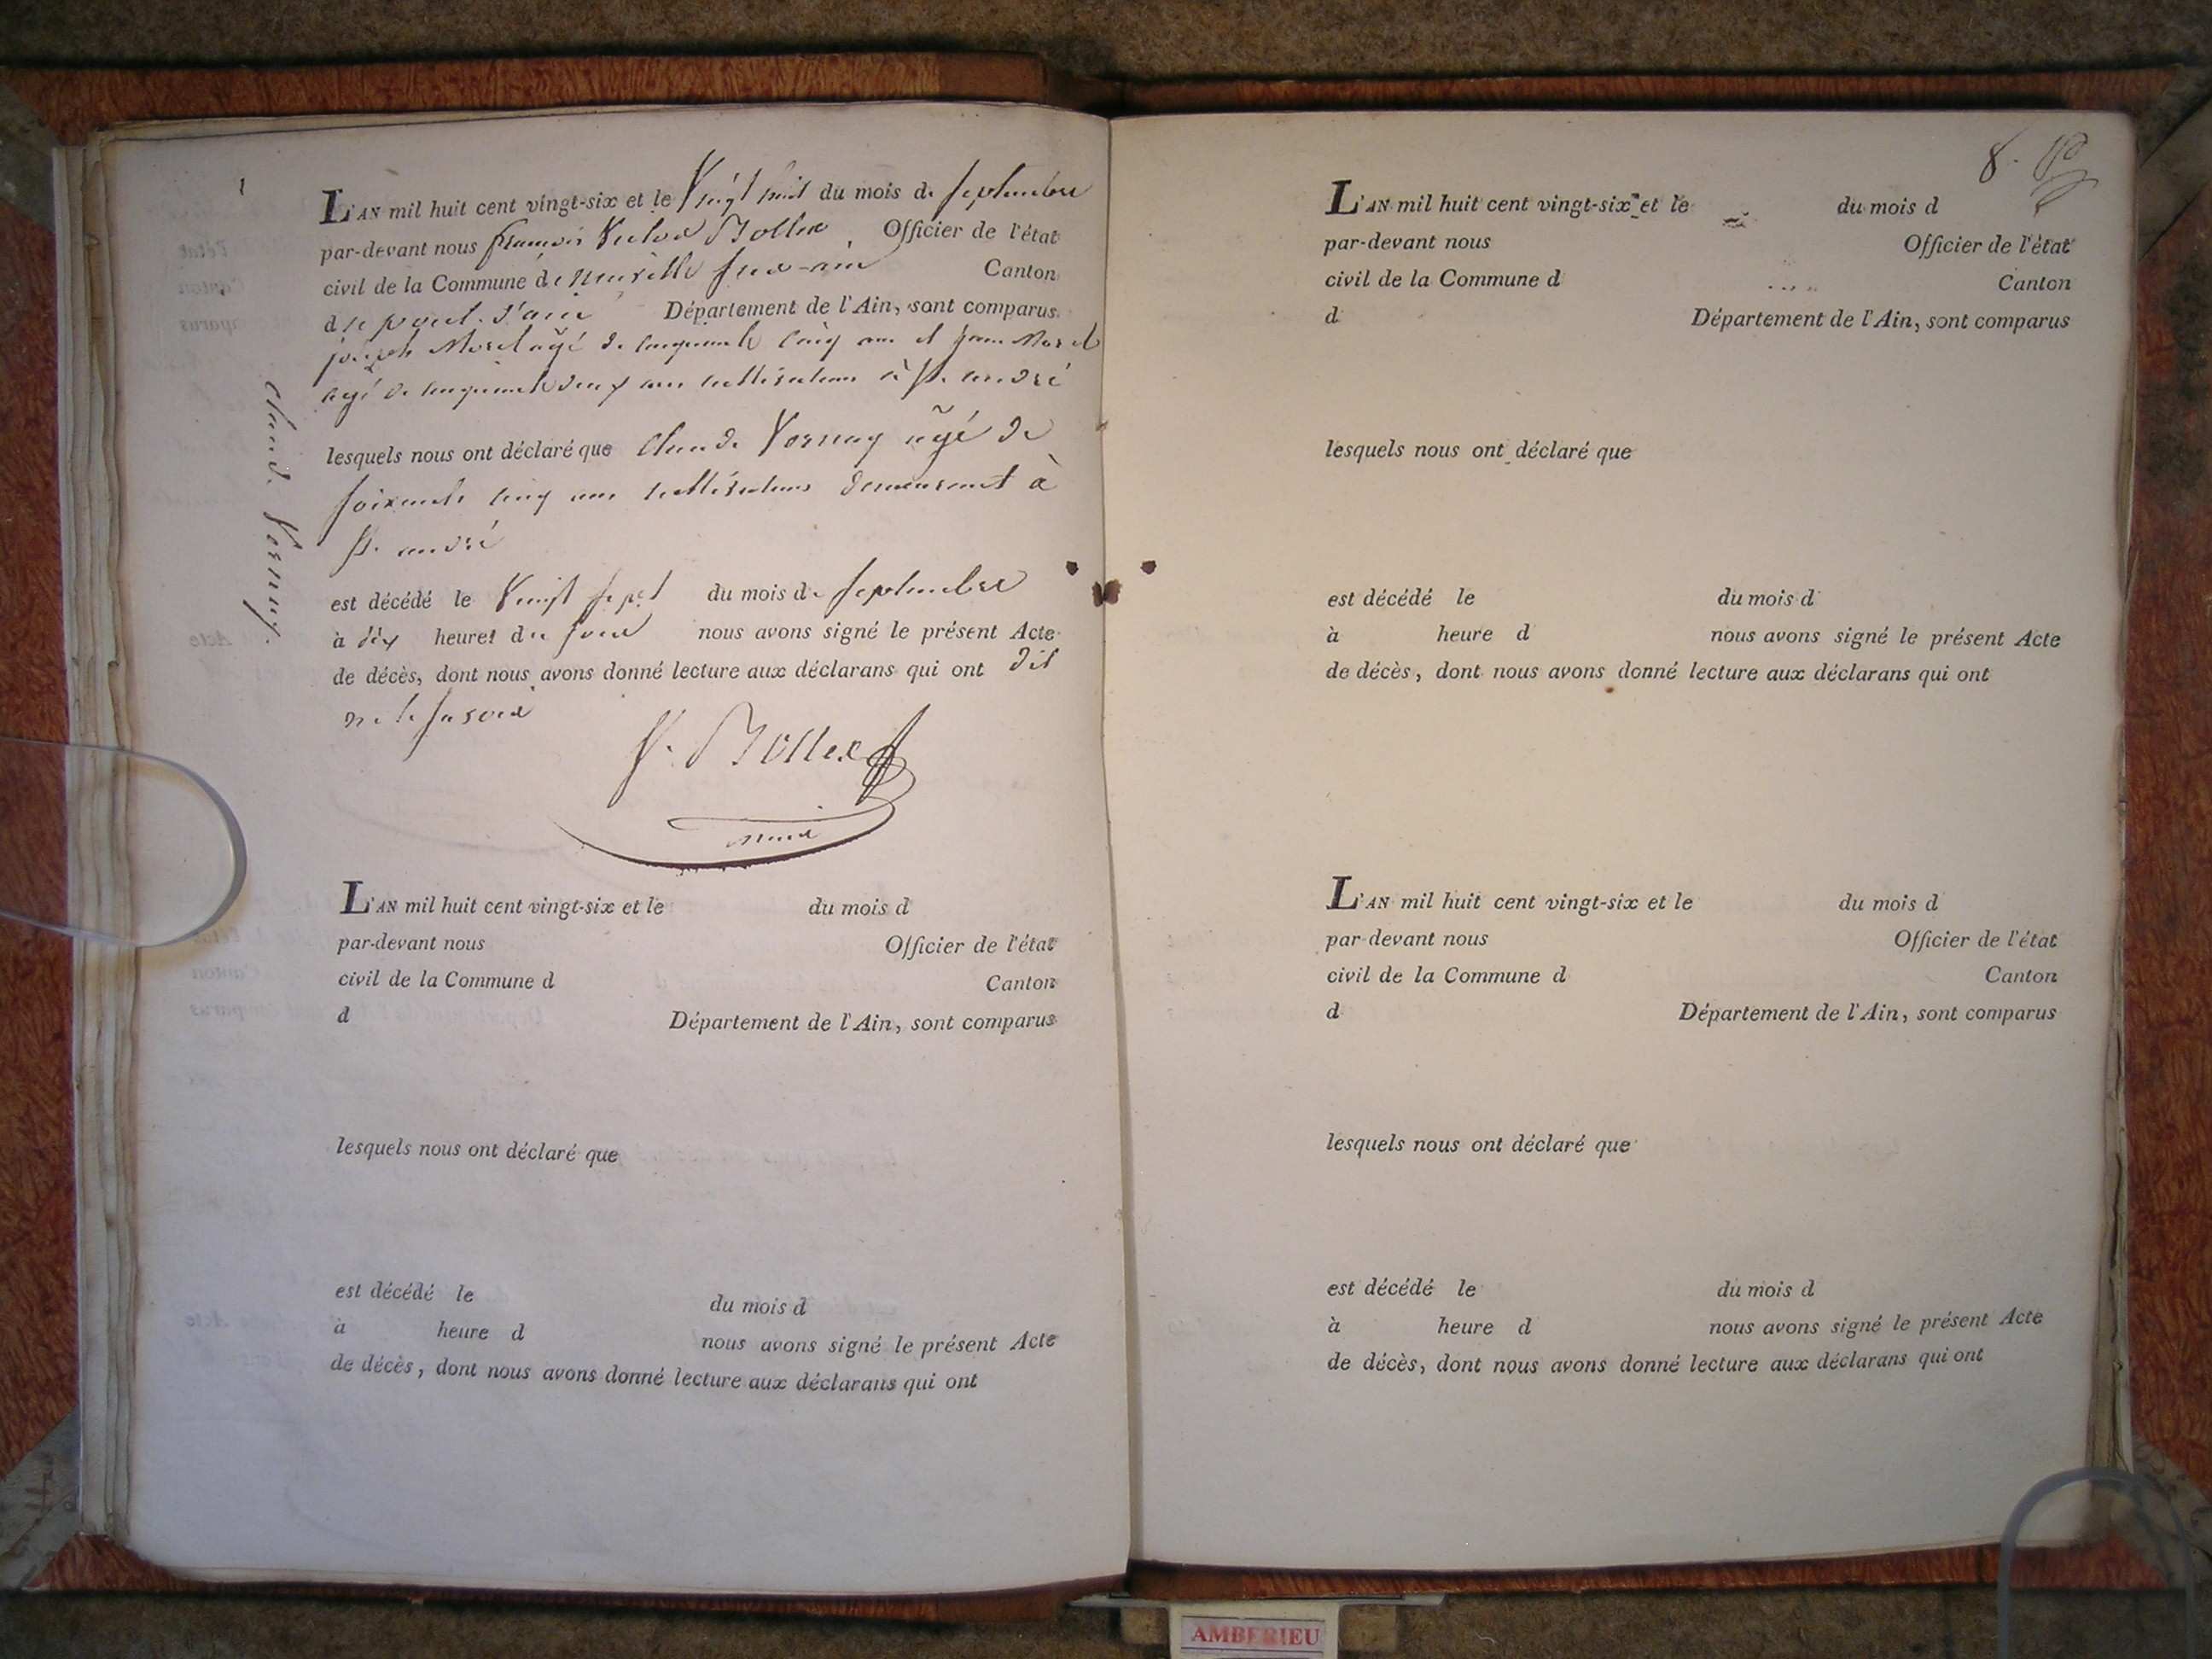 L'AN mil huit cent vingt-six et le Vingt huit du mois de septembre
par-devant nous françois Victor Bollex, Officier de l'état
civil de la Commune de neuville sur-ain Canton
de pont-d'ain Département de l'Ain, sont comparus
joseph Morel agé de cinquante cinq ans et jean Morel
agé de cinquante deux ans cultivateurs à St. andré
lesquels nous ont déclaré que Claude Vornay agé de
soixante cinq ans cultivateur demeurant à
St. andré
est décédé le Vingt sept du mois de septembre
à dix heures du soir nous avons signé le présent Acte
de décès, dont nous avons donné lecture aux déclarans qui ont dit
ne le savoir
maire
Claude Vornay.
L'AN mil huit cent vingt-six et le du mois d
par-devant nous Officier de l'état
civil de la Commune d Canton
d Département de l'Ain, sont comparus
lesquels nous ont déclaré que
est décédé le du mois d
à heure d nous avons signé le présent Acte
de décès, dont nous avons donné lecture aux déclarans qui ont
8.
L'AN mil huit cent vingt-six et le du mois d
par-devant nous Officier de l'état
civil de la Commune d Canton
d Département de l'Ain, sont comparus
lesquels nous ont déclaré que
est décédé le du mois d
à heure d nous avons signé le présent Acte
de décès, dont nous avons donné lecture aux déclarans qui ont
L'AN mil huit cent vingt-six et le du mois d
par-devant nous Officier de l'état
civil de la Commune d Canton
d Département de l'Ain, sont comparus
lesquels nous ont déclaré que
est décédé le du mois d
à heure d nous avons signé le présent Acte
de décès, dont nous avons donné lecture aux déclarans qui ont
AMBERIEU